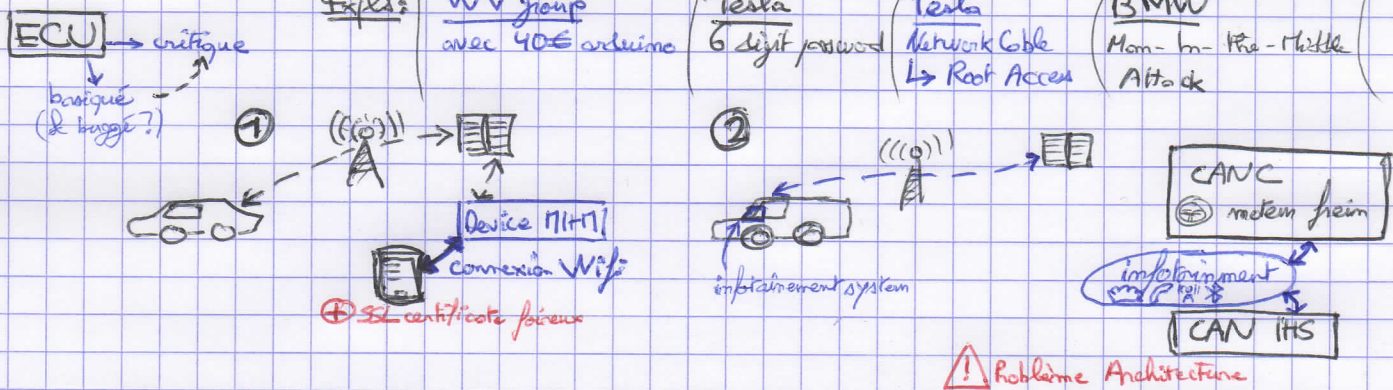 ECU → critique
basique
(& buggé ?)
Expls:
VW group
avec 40€ arduino
Tesla
6 digit password
Tesla
Network Cable
↳ Root Access
BMW
Man-In-the-Middle
Attack
①
Device MITM
connexion Wifi
⊕ SSL certificate foireux
②
infotainement system
CAN C
moteur frein
infotainment
CAN IHS
! Problème Architecture